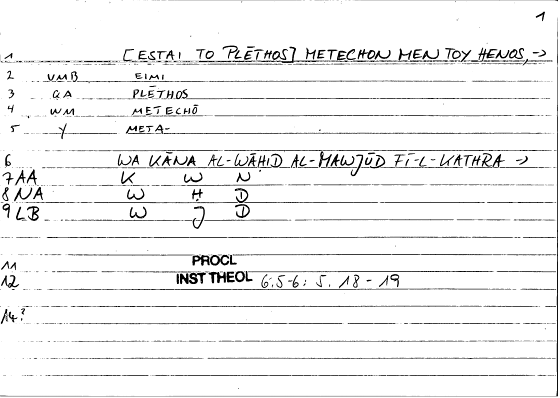 1
1 [ESTAI TO PLĒTHOS] METECHON MEN TOY HENOS, ->
2 VMB EIMI
3 QA PLĒTHOS
4 WM METECHŌ
5 Y META-
6 WA KĀNA AL-WĀHID AL-MAWJŪD FĪ-L-KATHRA ->
7 AA K W N
8 NA W H D
9 LB W J D
11 PROCL
12 INST THEOL 6.5-6: 5. 18-19
14?